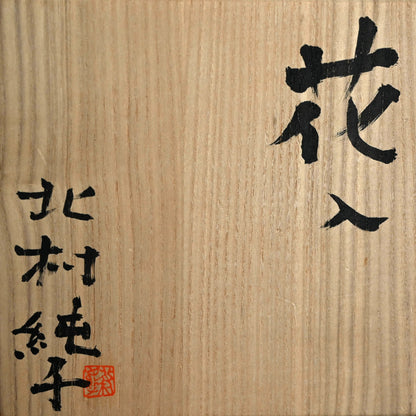 花入
北村純子